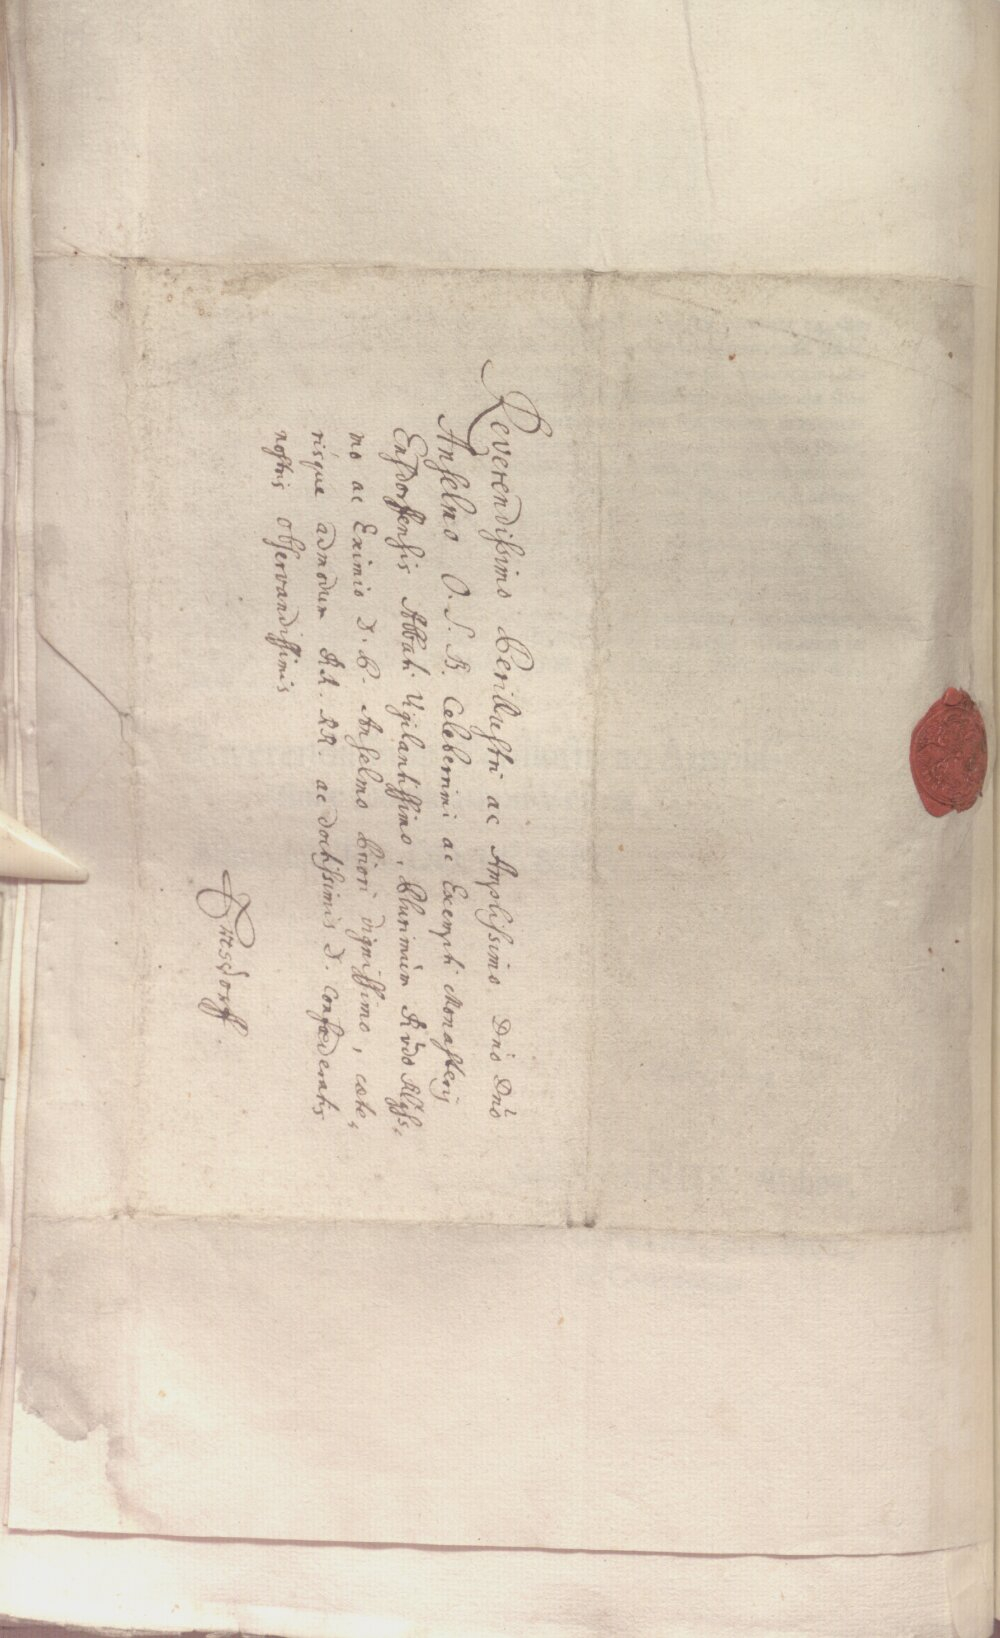 Reverendissimo Perillustri ac Amplissimo Dno Dno
Anselmo O. S. B. Celeberrimi ac Exempti Monasterij
Ensdorffensis Abbati Vigilantissimo, Plurimùm Rvdo Rlgss.
mo ac Eximio D. P. Anselmo Priori dignissimo, cæte,
risque admodum RR. RR. ac doctissimis D. Confœderatis
nostris observandissimis